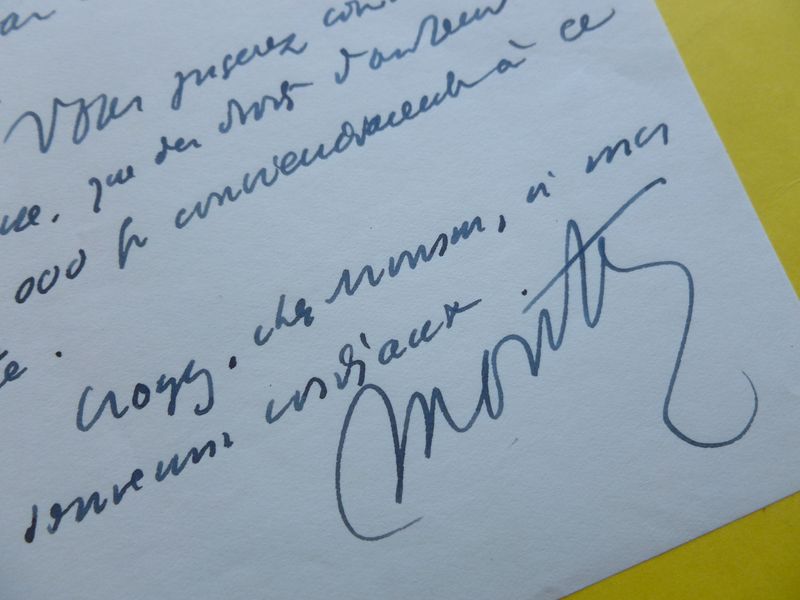 Vous jugerez
que des droits d'auteur
000 fr conviendraient à ce
Croyez, cher Monsieur, à mes
souvenirs cordiaux.